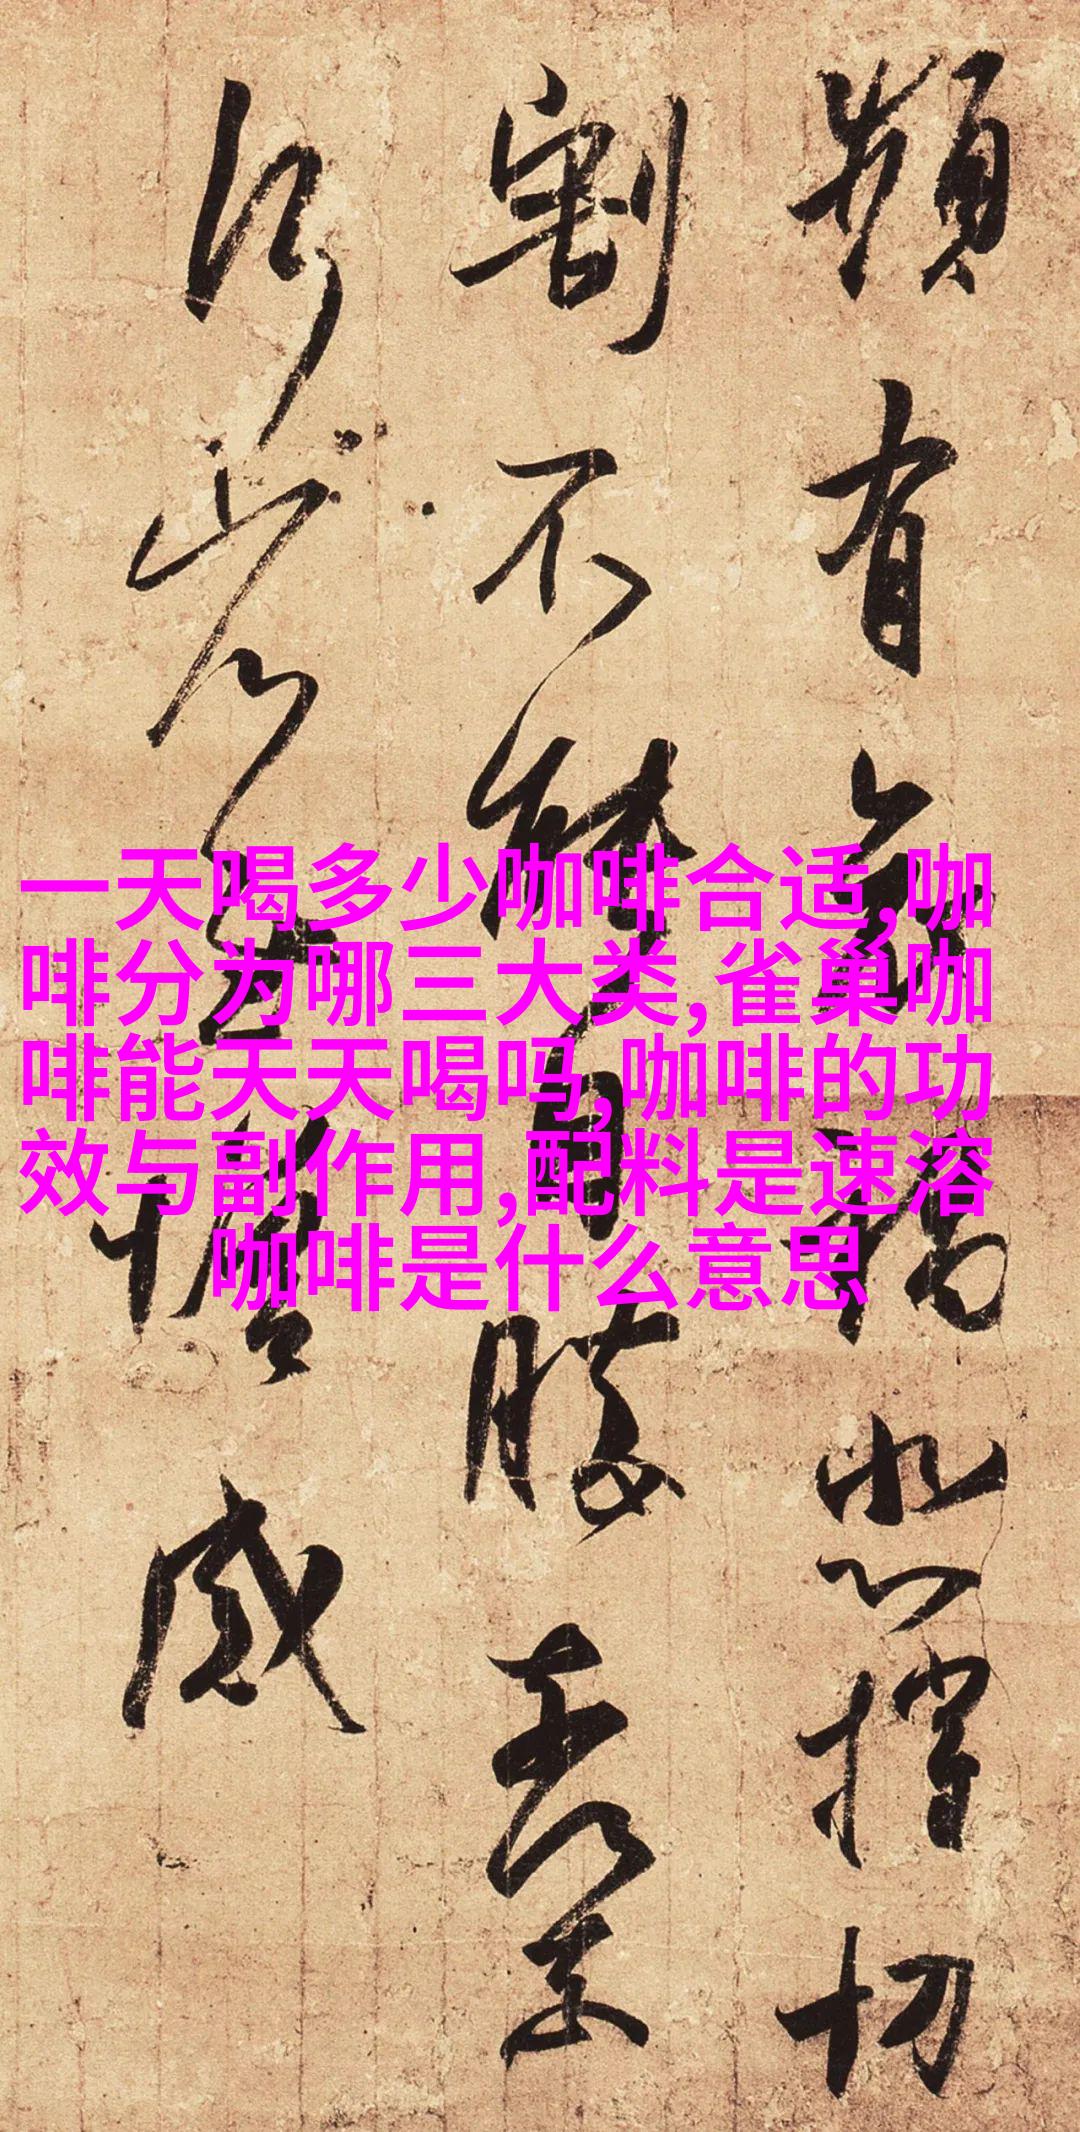 頻有哀禍悲摧切
割不能自勝奈何奈
何省慰增感
一天喝多少咖啡合适,咖
啡分为哪三大类,雀巢咖
啡能天天喝吗,咖啡的功
效与副作用,配料是速溶
咖啡是什么意思